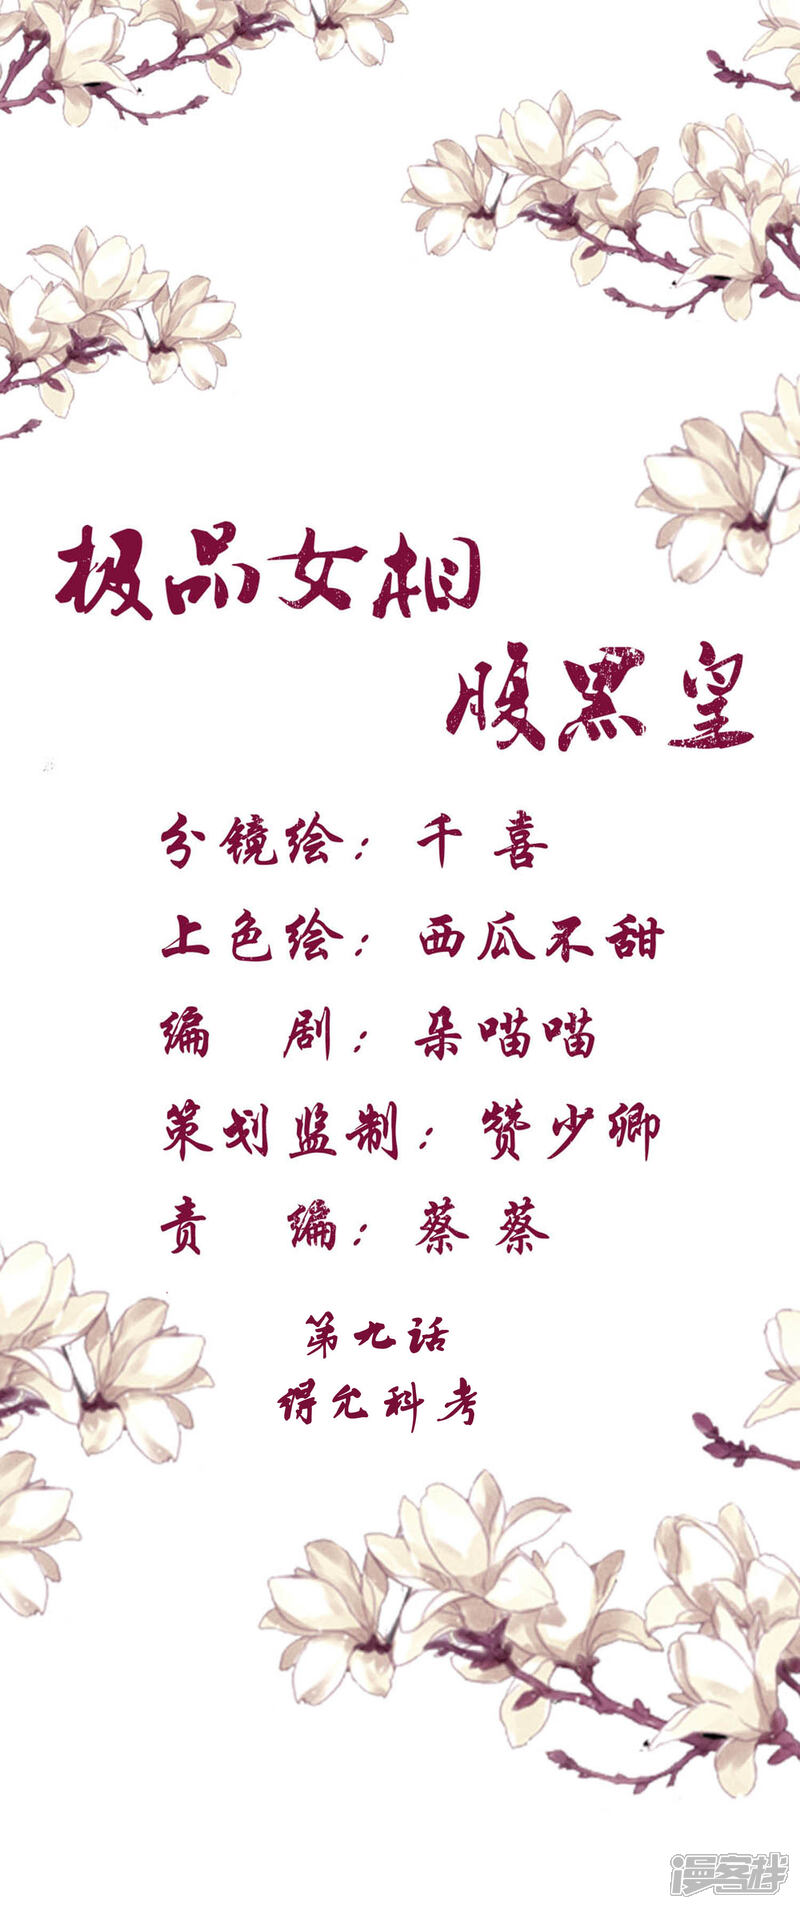 极品女相
腹黑皇
分镜绘：千喜
上色绘：西瓜不甜
编 剧：朵喵喵
策划监制：赞少卿
责 编：蔡蔡
第九话
得允科考
漫客栈